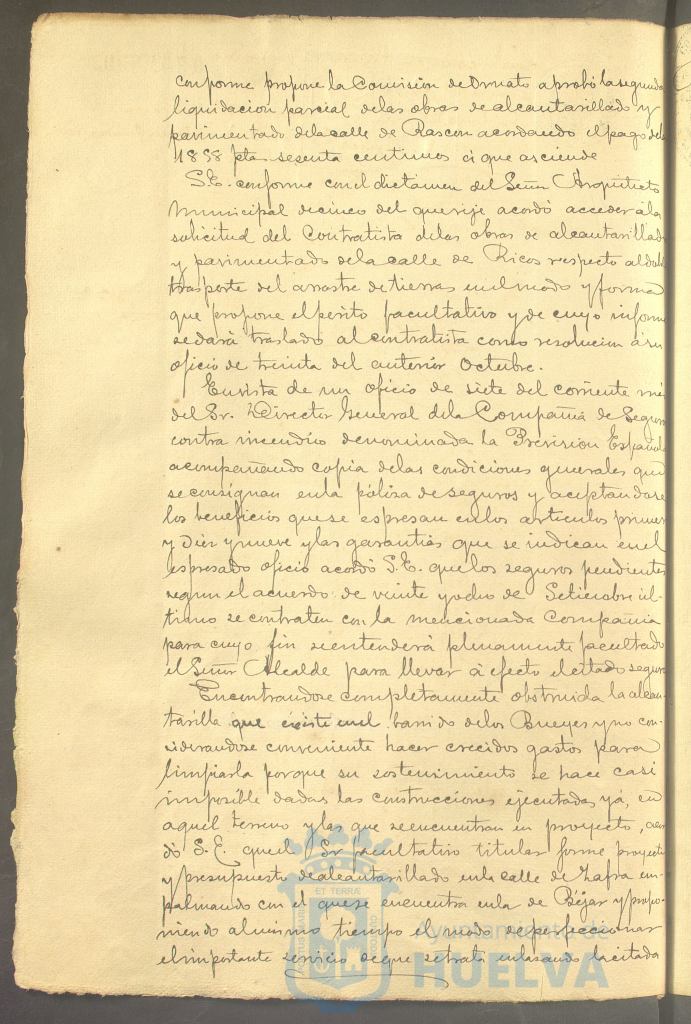 conforme propone la Comisión de Ornato aprobó la segunda
liquidacion parcial delas obras de alcantarillado y
pavimentado dela calle de Rascon acordando el pago delas
1858 ptas sesenta centimos á que asciende
S.E. conforme con el dictámen del Señor Arquitecto
Municipal de cinco del que rije acordó acceder á la
solicitud del Contratista delas obras de alcantarillado
y pavimentado dela calle de Ricos respecto al doble
trasporte del arrastre de tierras en el modo y forma
que propone el perito facultativo y de cuyo informe
se dará traslado al contratista como resolucion á su
oficio de treinta del anterior Octubre.
En vista de un oficio de siete del corriente mes
del Sr. Director General dela Compañia de Seguros
contra incendios denominada la Prevision Española
acompañando copia delas condiciones generales que
se consignan en la póliza de seguros y aceptandose
los beneficios que se espresan en los articulos primero
y Diez y nueve y las garantias que se indican en el
espresado oficio acordó S.E. que los seguros pendientes
segun el acuerdo de veinte y ocho de Setiembre úl-
timo se contraten con la mencionada Compañia
para cuyo fin se entenderá plenamente facultado
el Señor Alcalde para llevar á efecto el citado seguro
Encontrandose completamente obstruida la alcan-
tarilla que existe en el barrido delos Bueyes y no con-
siderandose conveniente hacer crecidos gastos para
limpiarla porque su sostenimiento se hace casi
imposible dadas las construcciones ejecutadas yá, en
aquel terreno y las que se encuentran en proyecto, acor-
dó S.E. que el Sr facultativo titular forme proyecto
y presupuesto de alcantarillado en la calle de Zafra em-
palmando con el que se encuentra en la de Béjar y propo-
niendo al mismo tiempo el modo de perfeccionar
el importante servicio de que se trata enlazando la citada
ET TERRÆ
Ayuntamiento de
HUELVA